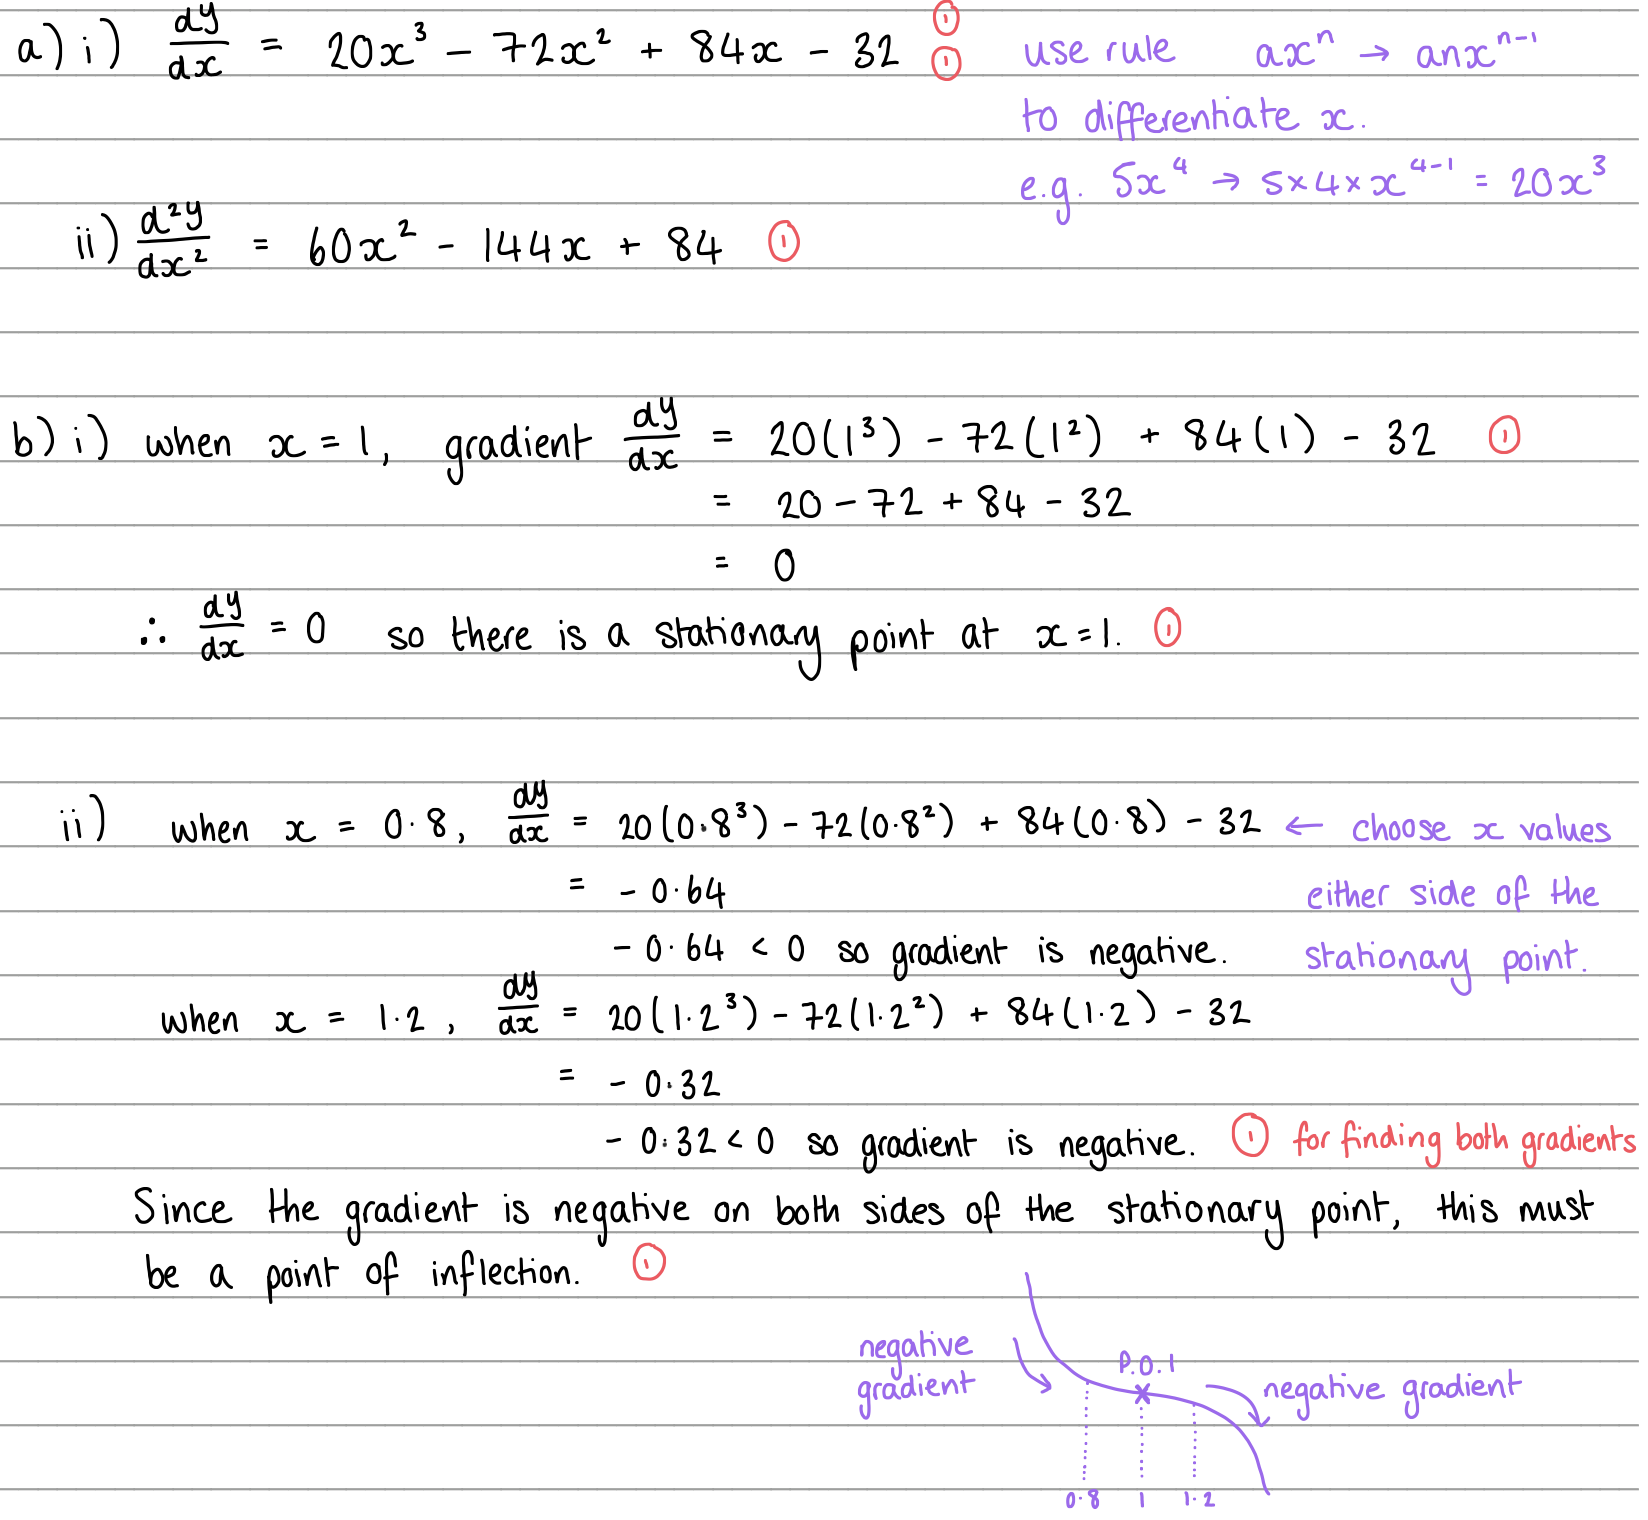 a) i) dy/dx = 20x³ − 72x² + 84x − 32 ① ① use rule axⁿ → anxⁿ⁻¹
to differentiate x.
e.g. 5x⁴ → 5×4×x⁴⁻¹ = 20x³
ii) d²y/dx² = 60x² − 144x + 84 ①
b) i) when x = 1, gradient dy/dx = 20(1³) − 72(1²) + 84(1) − 32 ①
= 20 − 72 + 84 − 32
= 0
∴ dy/dx = 0 so there is a stationary point at x = 1. ①
ii) when x = 0.8, dy/dx = 20(0.8³) − 72(0.8²) + 84(0.8) − 32 ← choose x values
= − 0.64 either side of the
− 0.64 < 0 so gradient is negative. stationary point.
when x = 1.2, dy/dx = 20(1.2³) − 72(1.2²) + 84(1.2) − 32
= − 0.32
− 0.32 < 0 so gradient is negative. ① for finding both gradients
Since the gradient is negative on both sides of the stationary point, this must
be a point of inflection. ①
negative
gradient
P.O.I
negative gradient
0.8 1 1.2